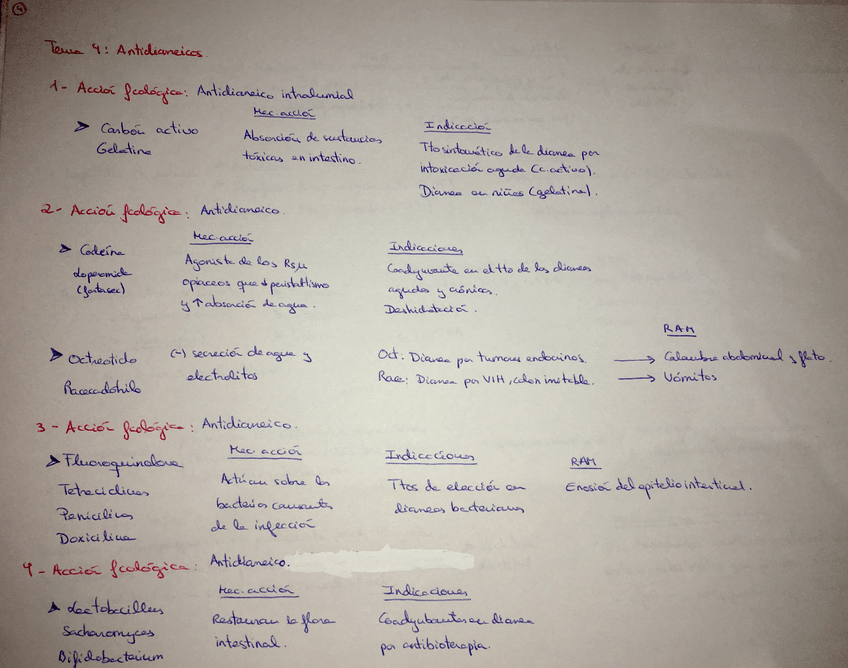 4
Tema 4: Antidiarreicos.
1- Acción fcológica: Antidiarreico intralumial
Mec. acción
Indicación
> Carbón activo
Gelatina
Absorción de sustancias
tóxicas en intestino.
Tto sintomático de la diarrea por
intoxicación aguda (c. activo).
Diarrea en niños (gelatina).
2- Acción fcológica: Antidiarreico.
Mec. acción
Indicaciones
> Codeína
Loperamida
(fortasec)
Agonista de los Rs µ
opiáceos que ↓ peristaltismo
y ↑ absorción de agua.
Coadyuvante en el tto de las diarreas
agudas y crónicas.
Deshidratación.
RAM
> Octreotido
Racecadotrilo
(-) secreción de agua y
electrolitos
Oct: Diarrea por tumores endocrinos. → Calambre abdominal y flato.
Race: Diarrea por VIH, colon irritable. → Vómitos
3 - Acción fcológica: Antidiarreico.
Mec. acción
Indicaciones
RAM
> Fluoroquinolona
Tetraciclinas
Penicilinas
Doxicilina
Actúan sobre las
bacterias causantes
de la infección
Ttos de elección en
diarreas bacterianas
Erosión del epitelio intestinal.
4 - Acción fcológica: Antidiarreico.
Mec. acción
Indicaciones
> Lactobacillus
Sacharomyces
Bifidobacterium
Restauran la flora
intestinal.
Coadyubantes en diarrea
por antibioterapia.